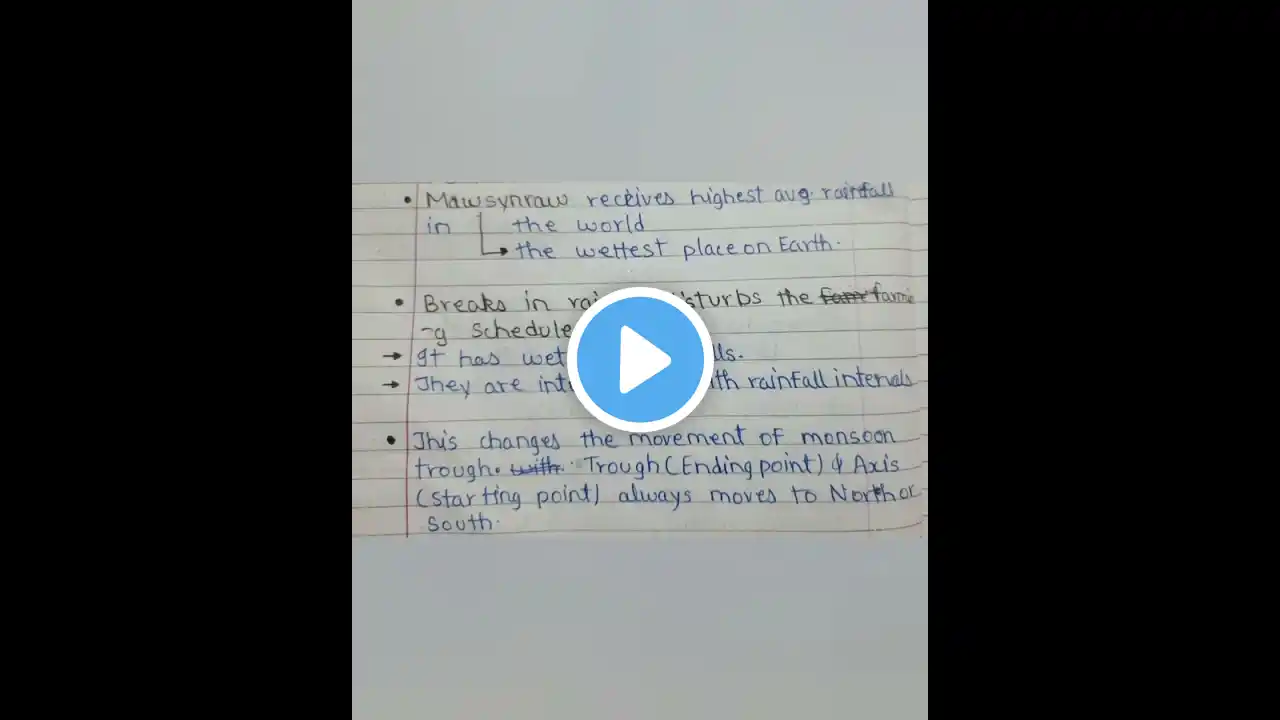 • Mawsynraw receives highest avg. rainfall
in the world
→ the wettest place on Earth.
• Breaks in rai sturbs the farr farmi
-g schedule
→ It has wet lls.
→ They are int th rainfall intervals
• This changes the movement of monsoon
trough. with. Trough (Ending point) & Axis
(starting point) always moves to North or
South.